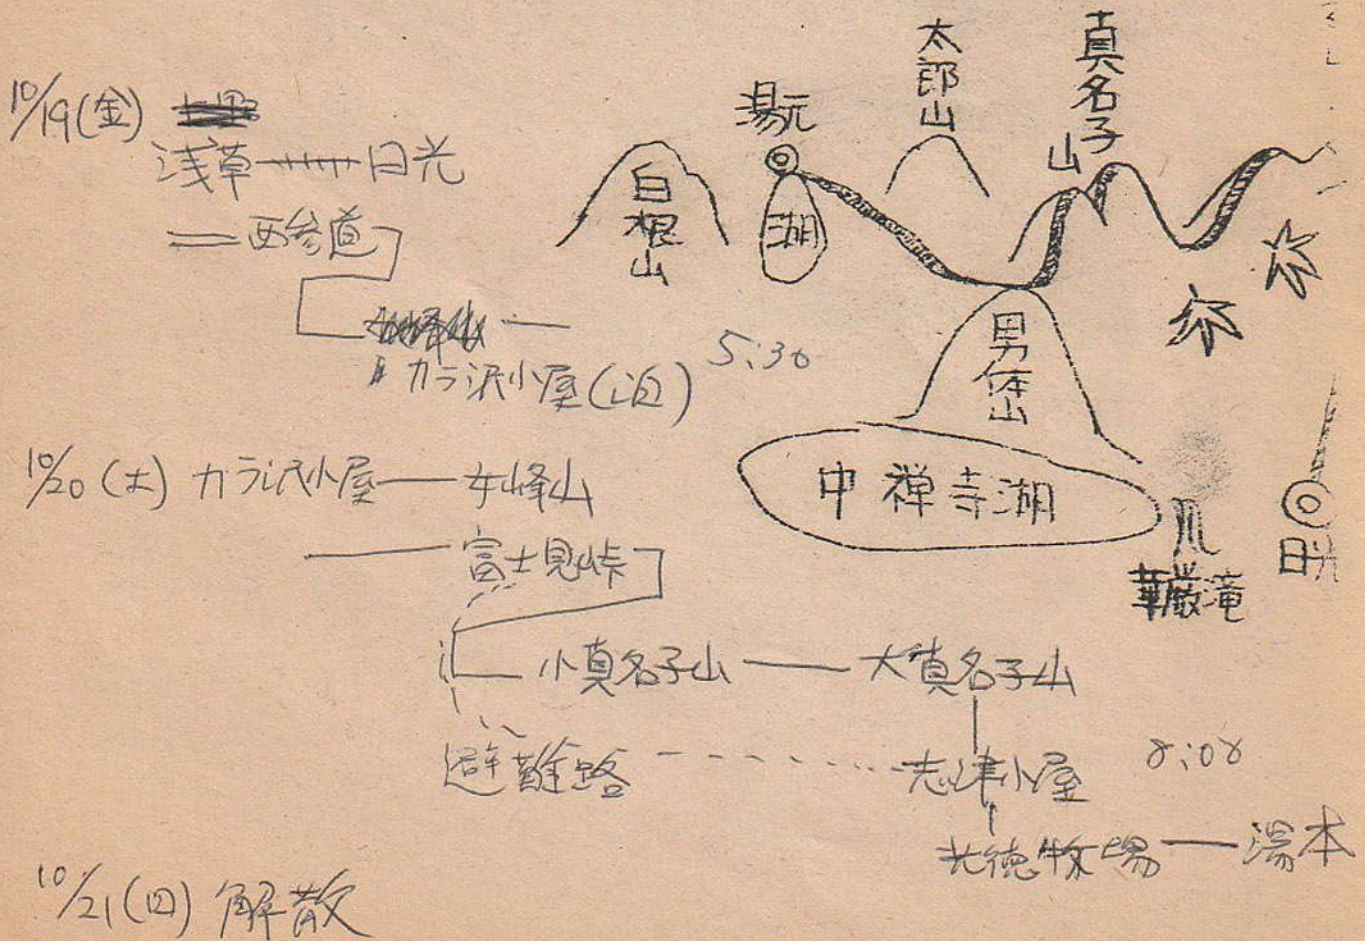 10/19(金)
浅草 日光
西参道
カラ沢小屋(泊) 5:30
10/20(土) カラ沢小屋 女峰山
富士見峠
小真名子山 大真名子山
避難路 志津小屋 8:08
光徳牧場 湯本
10/21(日) 解散
白根山
湯元
湖
太郎山
真名子山
男体山
中禅寺湖
華厳滝
日光